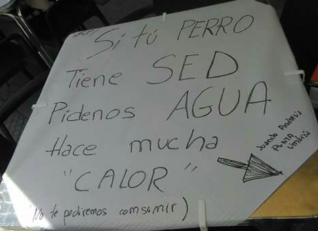 Si tú PERRO
Tiene SED
Pidenos AGUA
Hace mucha
"CALOR"
No te pediremos comsumir)